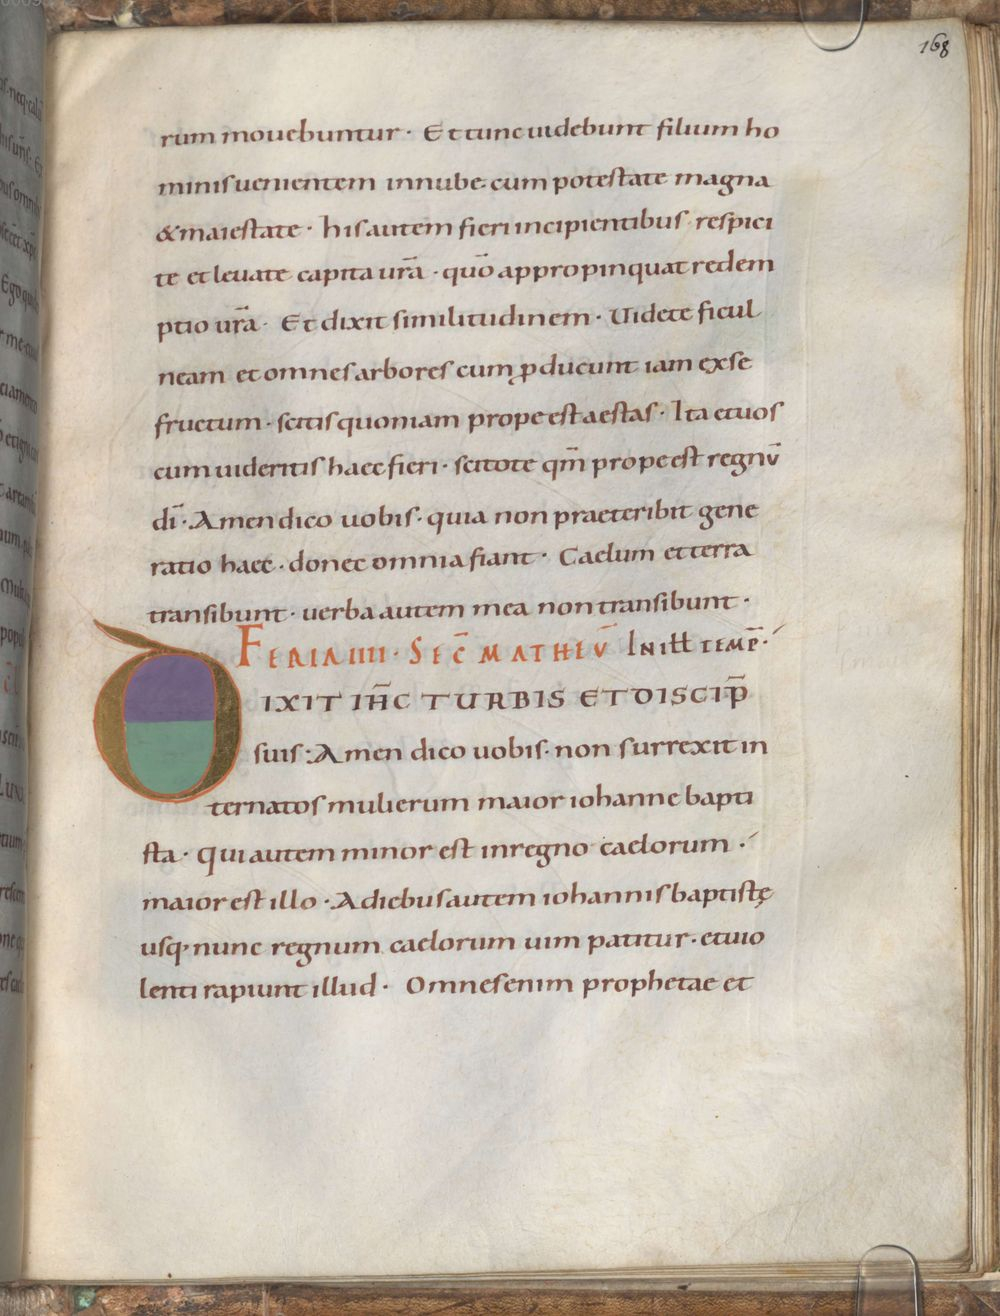 168
rum mouebuntur · Et tunc uidebunt filium ho
minis uenientem in nube cum potestate magna
& maiestate · his autem fieri incipientibus · respici
te et leuate capita ur̄a · quō appropinquat redem
ptio ur̄a · Et dixit similitudinem · Uidete ficul
neam et omnes arbores cum ꝓducunt iam ex se
fructum · scitis quoniam prope est aestas · Ita et uos
cum uideritis haec fieri · scitote qm̄ prope est regnū
dī · Amen dico uobis · quia non praeteribit gene
ratio haec · donec omnia fiant · Caelum et terra
transibunt · uerba autem mea non transibunt ·
FERIA IIII · SEC̄ MATHEŪ IN ILL TEMP̄ ·
DIXIT IH̄C TURBIS ET DISCIP̄
suis : Amen dico uobis · non surrexit in
ter natos mulierum maior iohanne bapti
sta · qui autem minor est in regno caelorum ·
maior est illo · A diebus autem iohannis baptistę
usq; nunc regnum caelorum uim patitur · et uio
lenti rapiunt illud · Omnes enim prophetae et